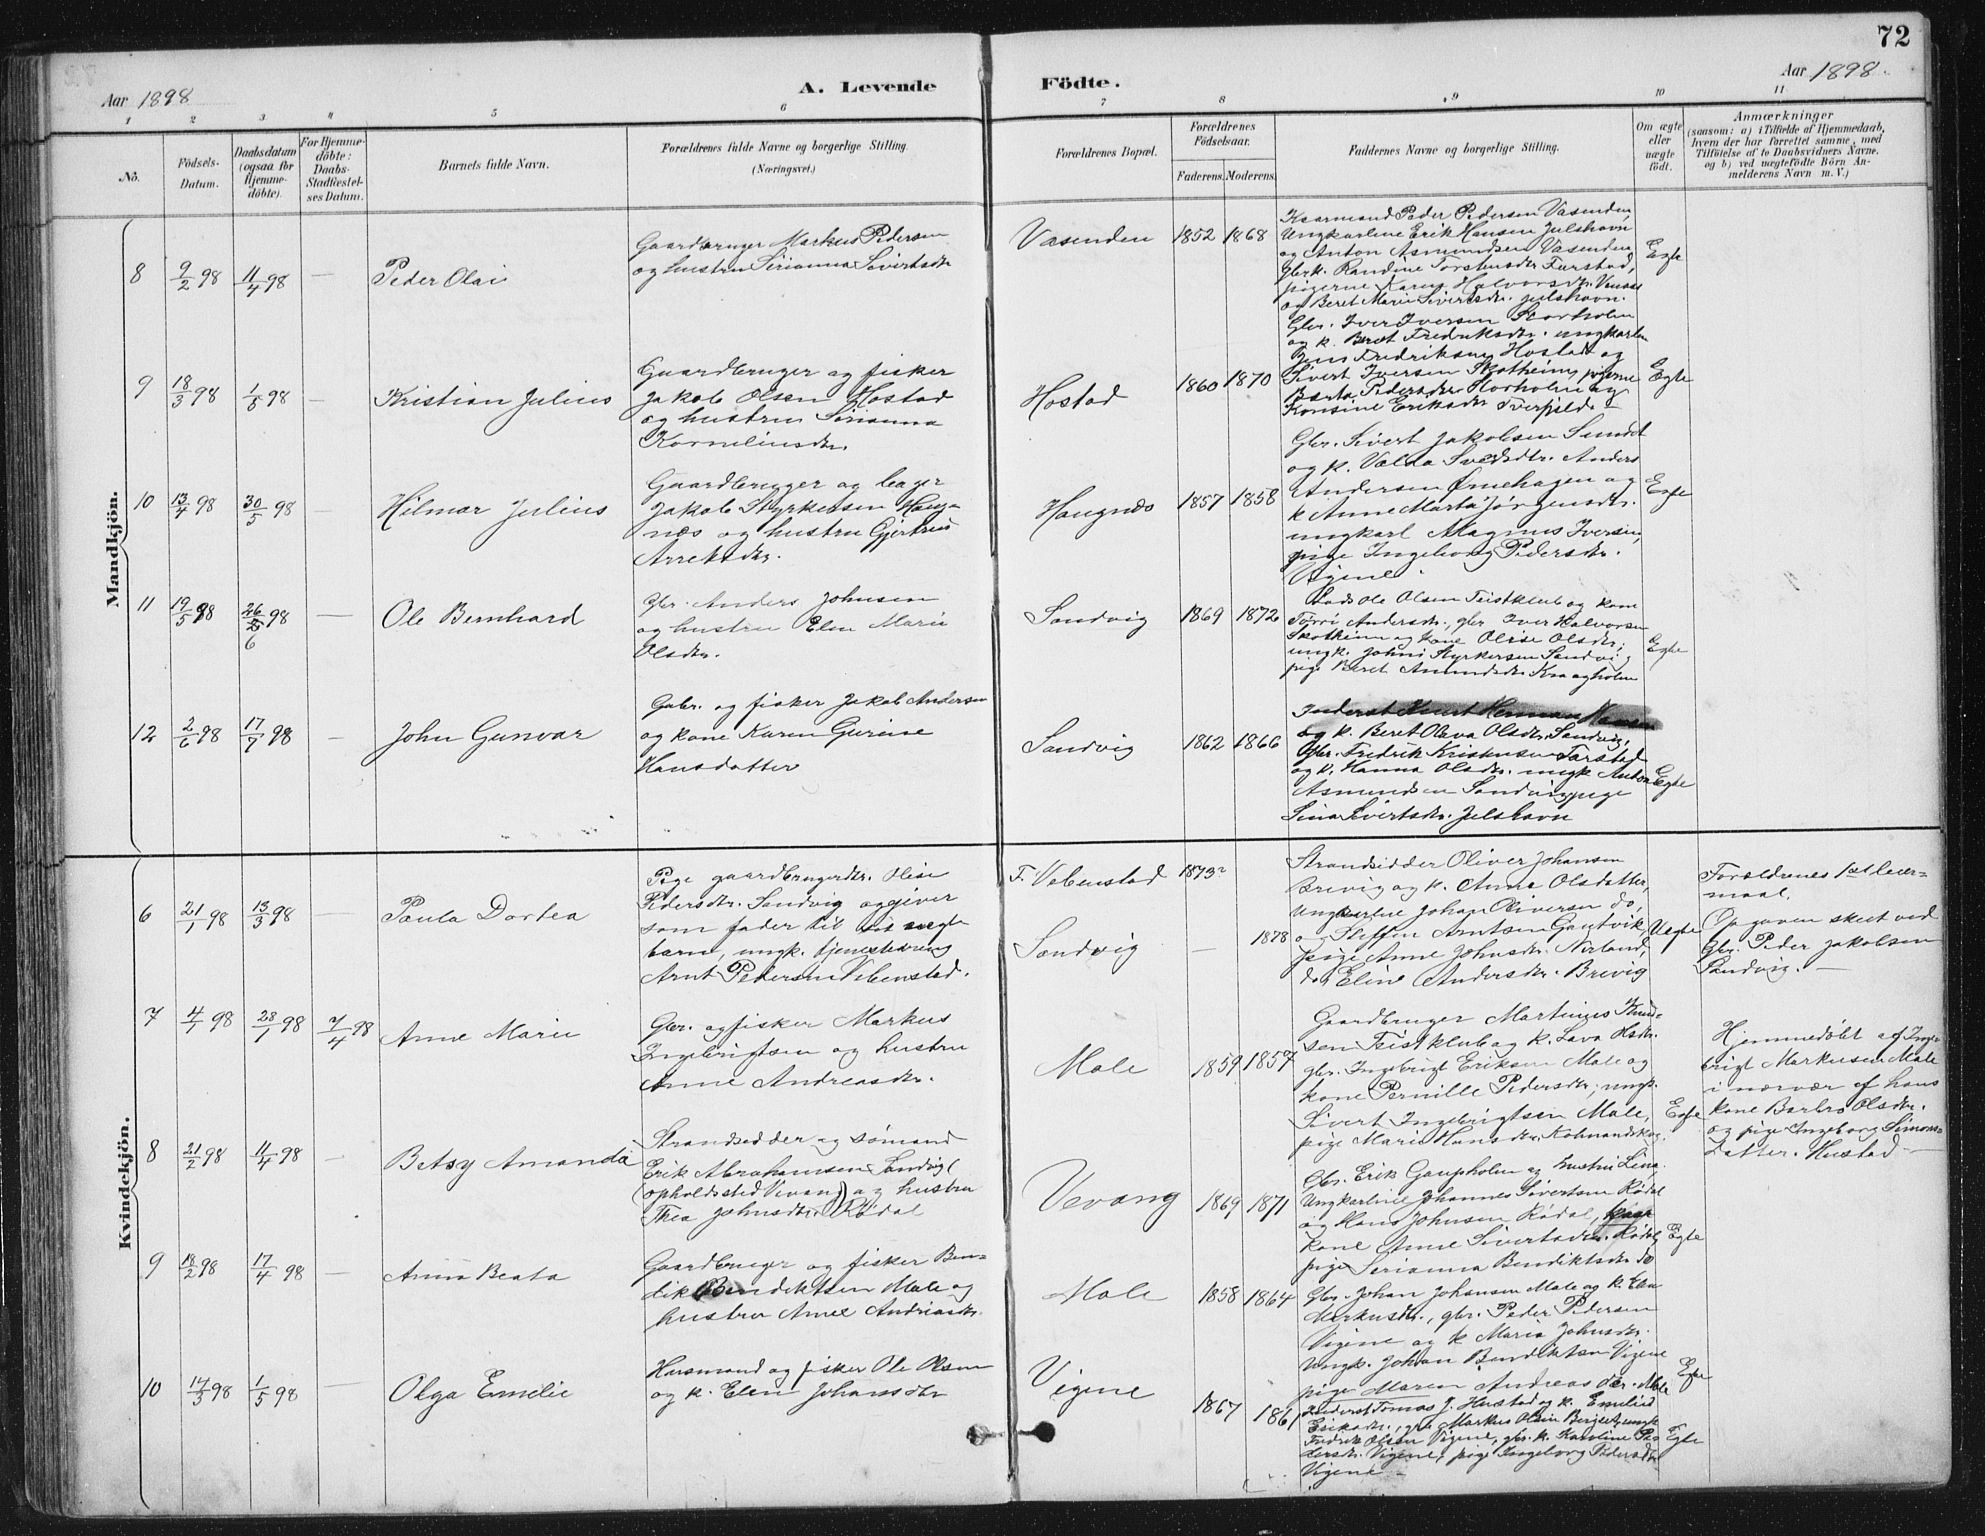 72
Aar 1898
A. Levende
Födte.
Aar 1898.
1 2 3 4 5 6 7 8 9 10 11
No.
Födsels-
Datum.
Daabsdatum
(ogsaa for
Hjemme-
döbte).
For Hjemme-
döbte:
Daabs-
Stadfæstel-
ses Datum.
Barnets fulde Navn.
Forældrenes fulde Navne og borgerlige Stilling.
(Næringsvei.)
Forældrenes Bopæl.
Forældrenes
Födselsaar.
Faderens. Moderens.
Faddernes Navne og borgerlige Stilling.
Om ægte
eller
uægte
födt.
Anmærkninger
(saasom: a) i Tilfælde af Hjemmedaab,
hvem der har forrettet samme, med
Tilföielse af to Daabsvidners Navne.
og b) ved uægtefödte Börn An-
melderens Navn m. V.)
Mandkjön.
8 9/2 98 11/4 98 — Peder Olai
Gaardbruger Markus Pedersen
og hustru Serianna Sivertsdtr
Vasenden 1852 1868
Peder Pedersen Vasenden,
Ungkarlene Erik Hansen Julshavn
og Anton Asmundsen Vasenden
og Beret Marie Sivertsdtr. Julshavn.
Egte
9 18/3 98 1/5 98 — Kristian Julius
Gaardbruger og fisker
Jakob Olsen Hostad
og hustru Serianna
Korneliusdtr.
Hostad 1860 1870
Gbr. Iver Iversen Storholm
og k. Beret Fredriksdtr. ungkarlen
Jens Fredriksen Hostad og
Sivert Iversen Skotheim, pigerne
Pedersdtr. Storholm og
Eriksdtr Tverfjeld.
Egte
10 13/4 98 30/5 98 — Hilmar Julius
Gaardbruger og
Jakob Styrkersen Haug-
næs og hustru Gjertrud
Haugnæs 1857 1858
Gbr. Sivert Jakobsen Sundet
og k. Anders
Andersen Ørnehagen og
k Anne Marta Jørgensdtr.
ungkarl Magnus Iversen,
pige Ingeborg Pedersdtr.
Vigene.
Egte
11 19/5 98 26/6 98 — Ole Bernhard
Gbr. Anders Johnsen
og hustru Elen Marie
Olsdtr.
Sandvig 1869 1872
Ole Olsen Teistklub og kone
Andersdtr., gbr Iver Halvorsen
Skotheim og kone Olise Olsdtr,
ungk. Johni Styrkersen Sandvig
pige Beret Amundsdtr Kraagholm
Egte
12 2/6 98 17/7 98 — John Gunvar
Gabr. og fisker Jakob Andersen
og kone Karen Gurine
Hansdatter
Sandvig 1862 1866
Inderst Knut Herman Hansen
og k. Beret Olava Olsdtr, Sandvig,
Gbr. Fredrik Kristensen Farstad
og k. Hanna Olsdtr. ungk Anton
Asmundsen Sandvig, pige
Sina Sivertsdtr. Julshavn
Egte
Kvindekjön.
6 21/1 98 13/3 98 — Paula Dortea
Pige gaardbrugerdtr. Olise
Pedersdtr. Sandvig opgiver
som fader til sit uægte
barn, ungk. tjenestedreng
Arnt Pedersen Vebenstad.
F. Vebenstad 1873
Sandvig — 1878
Strandsidder Oliver Johansen
Brevig og k. Anna Olsdatter,
Ungkarlene Johan Oliversen do,
og Steffen Arntsen Gautvik,
pige Anne Johnsdtr. Nerland,
do Eline Andersdtr. Brevig
Uegte
Forældrenes 1st leier-
maal.
Opgaven skeet ved
Gbr. Peder Jakobsen
Sandvig. —
7 4/1 98 23/1 98 7/4 98 Anne Marie
Gbr. og fisker Markus
Ingebrigtsen og hustru
Anne Andreasdtr.
Male 1859 1857
Gaardbruger Martinus Knud-
sen Teistklub og k. Lava Olsdtr.
gbr. Ingebrigt Eriksen Male og
kone Pernille Pedersdtr, ungk.
Sivert Ingebrigtsen Male,
pige Marie Hansdtr.
Egte
Hjemmedøbt af Inge-
brigt Markusen Male
i nærvær af hans
kone Barbro Olsdtr.
og pige Ingeborg Simons-
datter. Hustad —
8 21/2 98 11/4 98 — Betsy Amanda
Strandsidder og sømand
Erik Abrahamsen Sandvig
(opholdssted Vevang) og hustru
Thea Johnsdtr. Rødal
Vevang 1869 1871
Gbr. Erik Gaupholm og hustru Lina.
Ungkarlene Johannes Sivertsen Rødal
og Hans Johnsen Rødal,
kone Anne Sivertsdtr. Rødal
pige Serianna Bendiktsdtr do
Egte
9 18/2 98 17/4 98 — Anna Beata
Gaardbruger og fisker Ben-
dik Bendiktsen Male og
hustru Anne Andreasdtr.
Male 1858 1864
Gbr. Johan Johansen Male og k. Elen
Markusdtr., gbr. Peder Pedersen
Vigene og k Maria Johnsdtr.
Ungk. Johan Bendiktsen Vigene
pige Maren Andreasdtr. Male
Egte
10 14/3 98 1/5 98 — Olga Emelie
Husmand og fisker Ole Olsen
og k. Elen Johansdtr
Vigene 1867 1861
Inderst Tomas J. Hustad og k. Emelie
Eriksdtr., gbr Markus Olsen
Fredrik Olsen Vigene, gbr. k. Karoline Pe-
dersdtr. Vigene, pige Ingeborg Pedersdtr
Vigene —
Egte